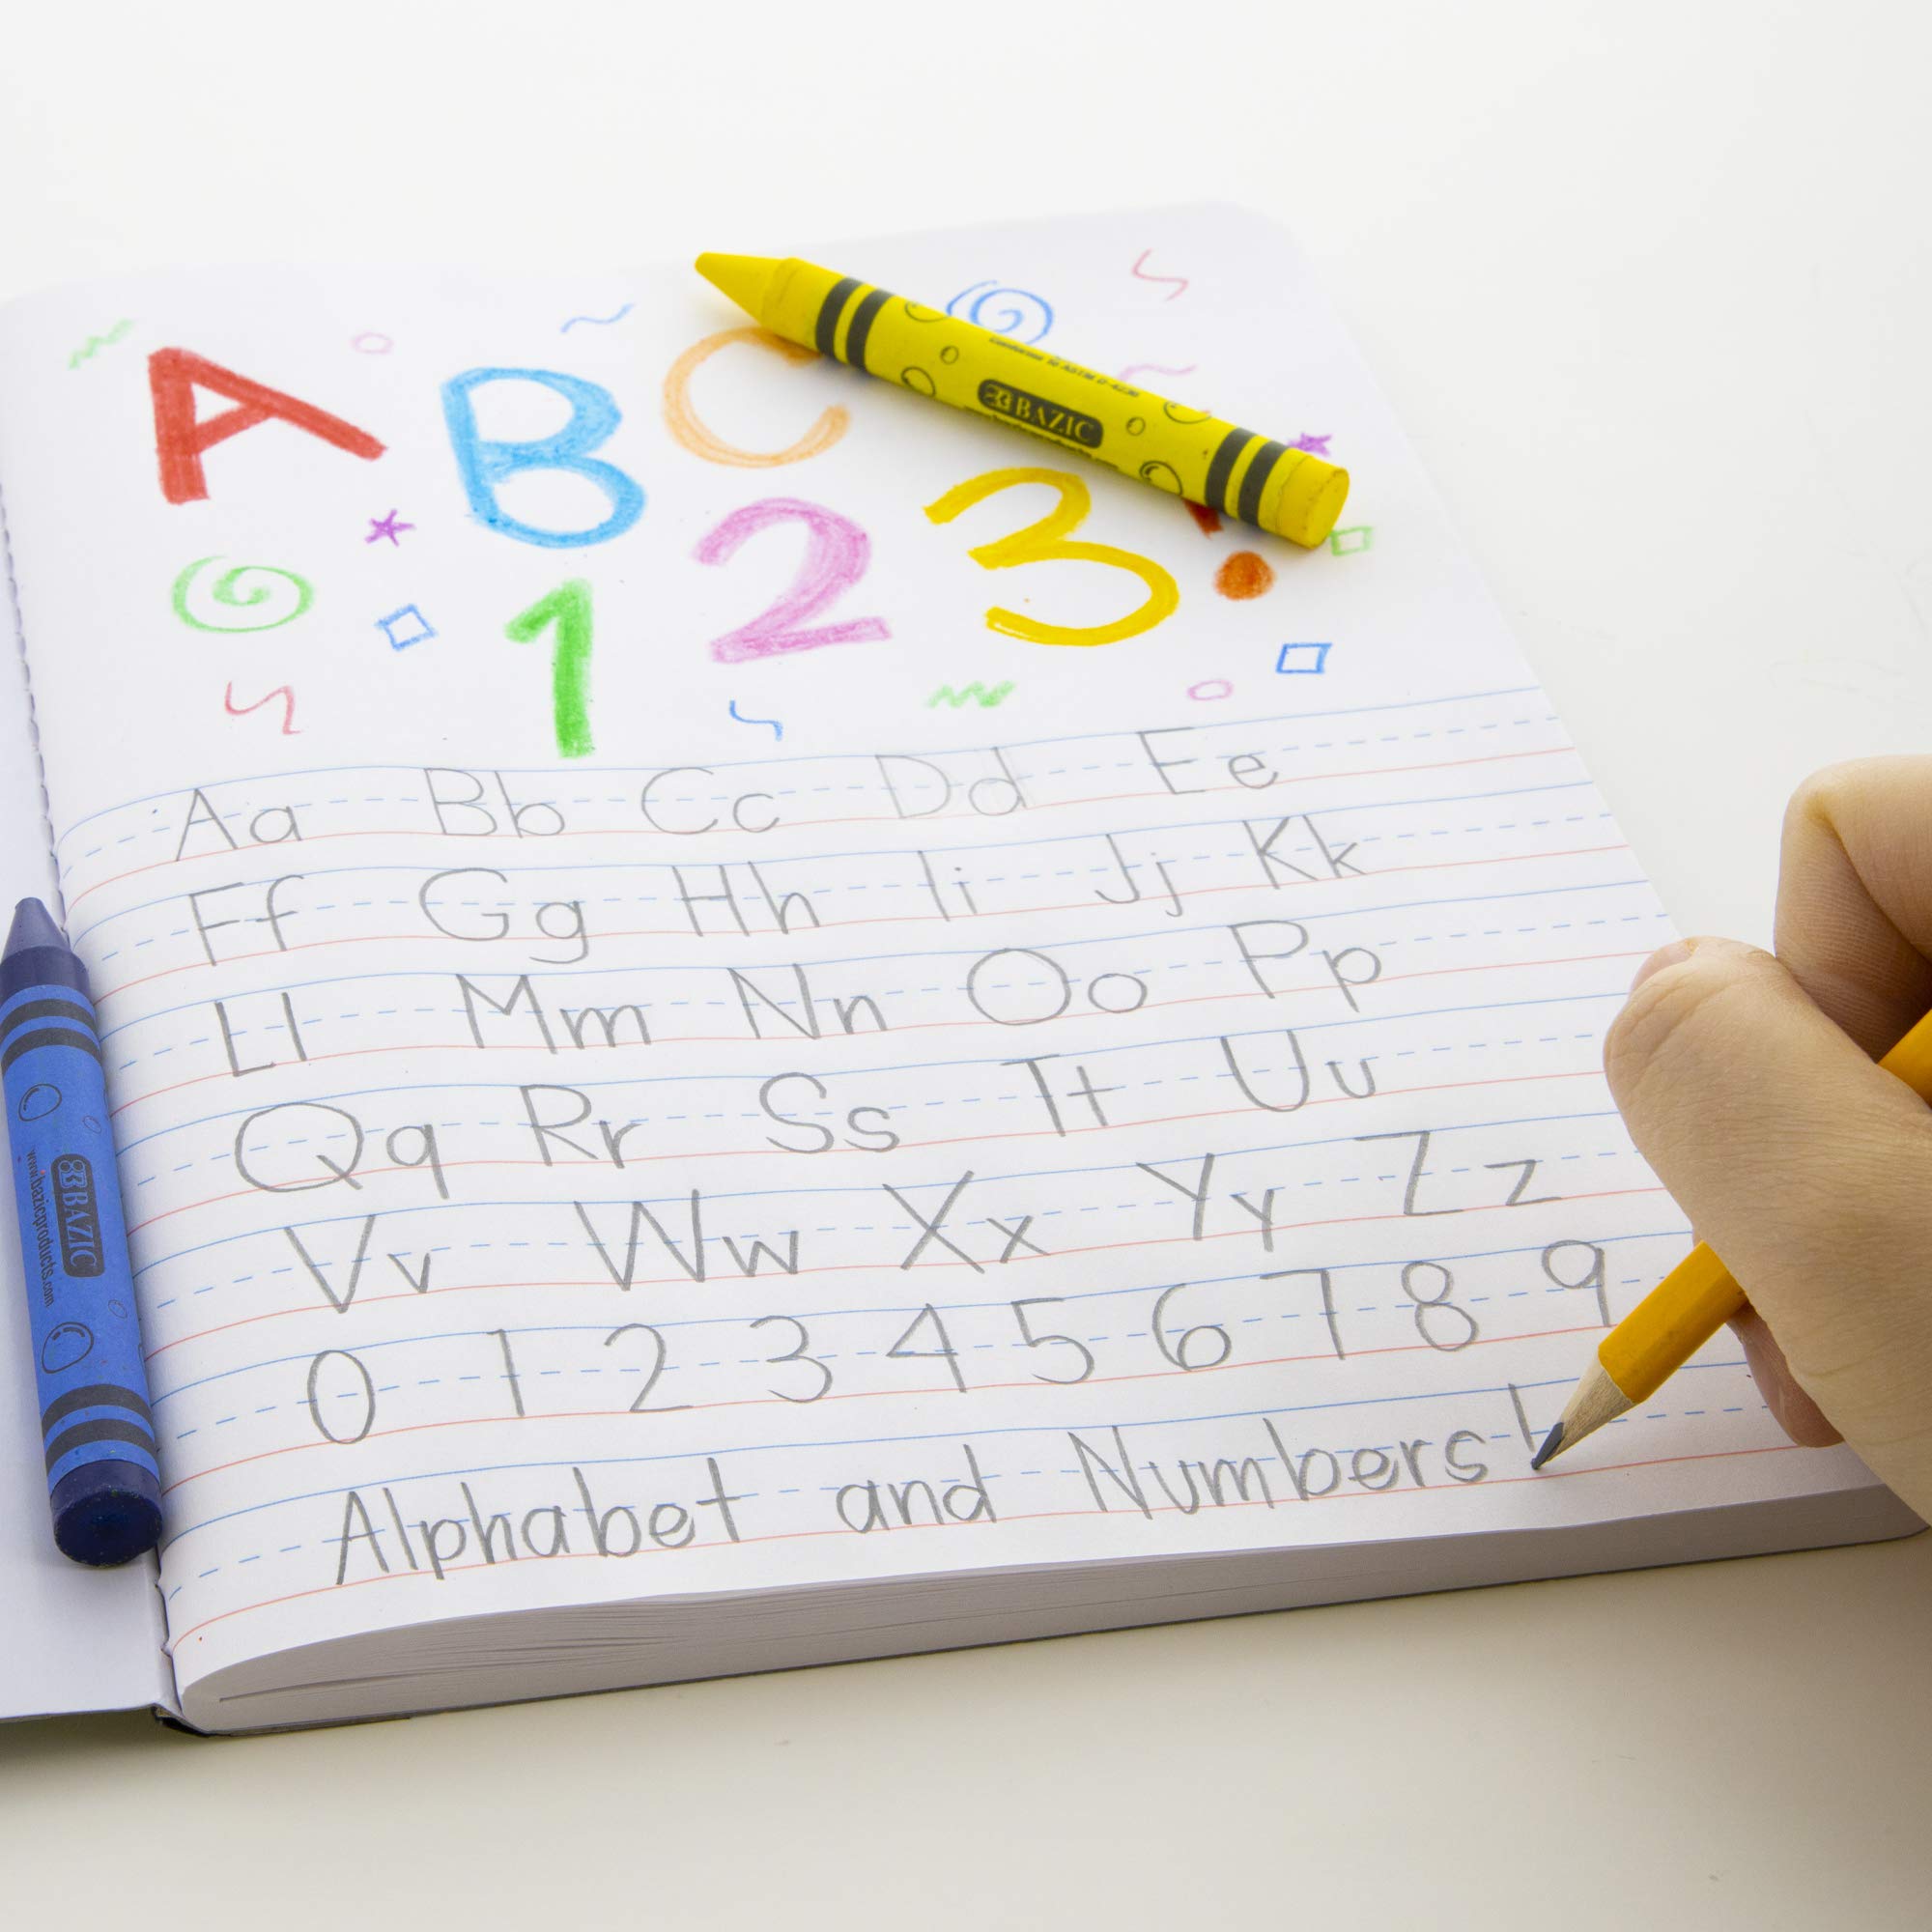 A B C
1 2 3
BAZIC
Aa Bb Cc Dd Ee
Ff Gg Hh Ii Jj Kk
Ll Mm Nn Oo Pp
Qq Rr Ss Tt Uu
Vv Ww Xx Yy Zz
0 1 2 3 4 5 6 7 8 9
Alphabet and Numbers!
BAZIC
www.bazicproducts.com